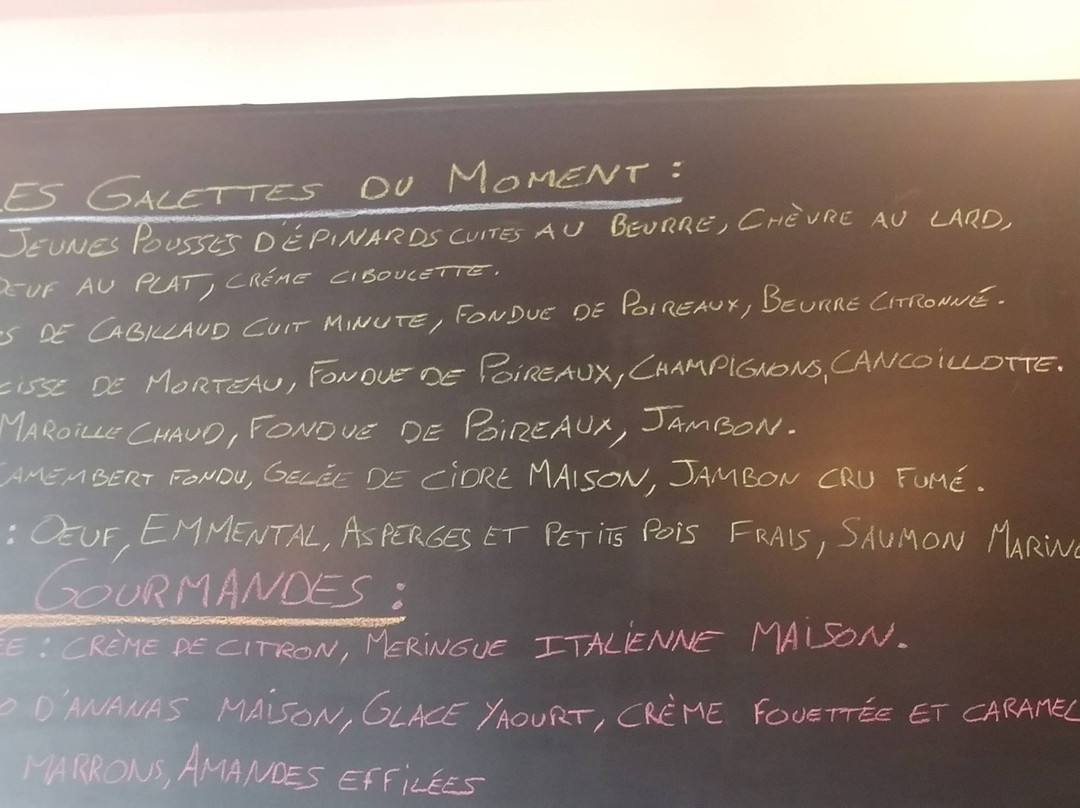 LES GALETTES DU MOMENT :
JEUNES POUSSES D'ÉPINARDS CUITES AU BEURRE, CHÈVRE AU LARD,
OEUF AU PLAT, CRÉME CIBOULETTE.
S DE CABILLAUD CUIT MINUTE, FONDUE DE POIREAUX, BEURRE CITRONNÉ.
CISSE DE MORTEAU, FONDUE DE POIREAUX, CHAMPIGNONS, CANCOILLOTTE.
MAROILLE CHAUD, FONDUE DE POIREAUX, JAMBON.
CAMEMBERT FONDU, GELÉE DE CIDRE MAISON, JAMBON CRU FUMÉ.
: OEUF, EMMENTAL, ASPERGES ET PETITS POIS FRAIS, SAUMON MARINÉ
GOURMANDES :
ÉE : CRÈME DE CITRON, MERINGUE ITALIENNE MAISON.
O D'ANANAS MAISON, GLACE YAOURT, CRÈME FOUETTÉE ET CARAMEL
MARRONS, AMANDES EFFILÉES